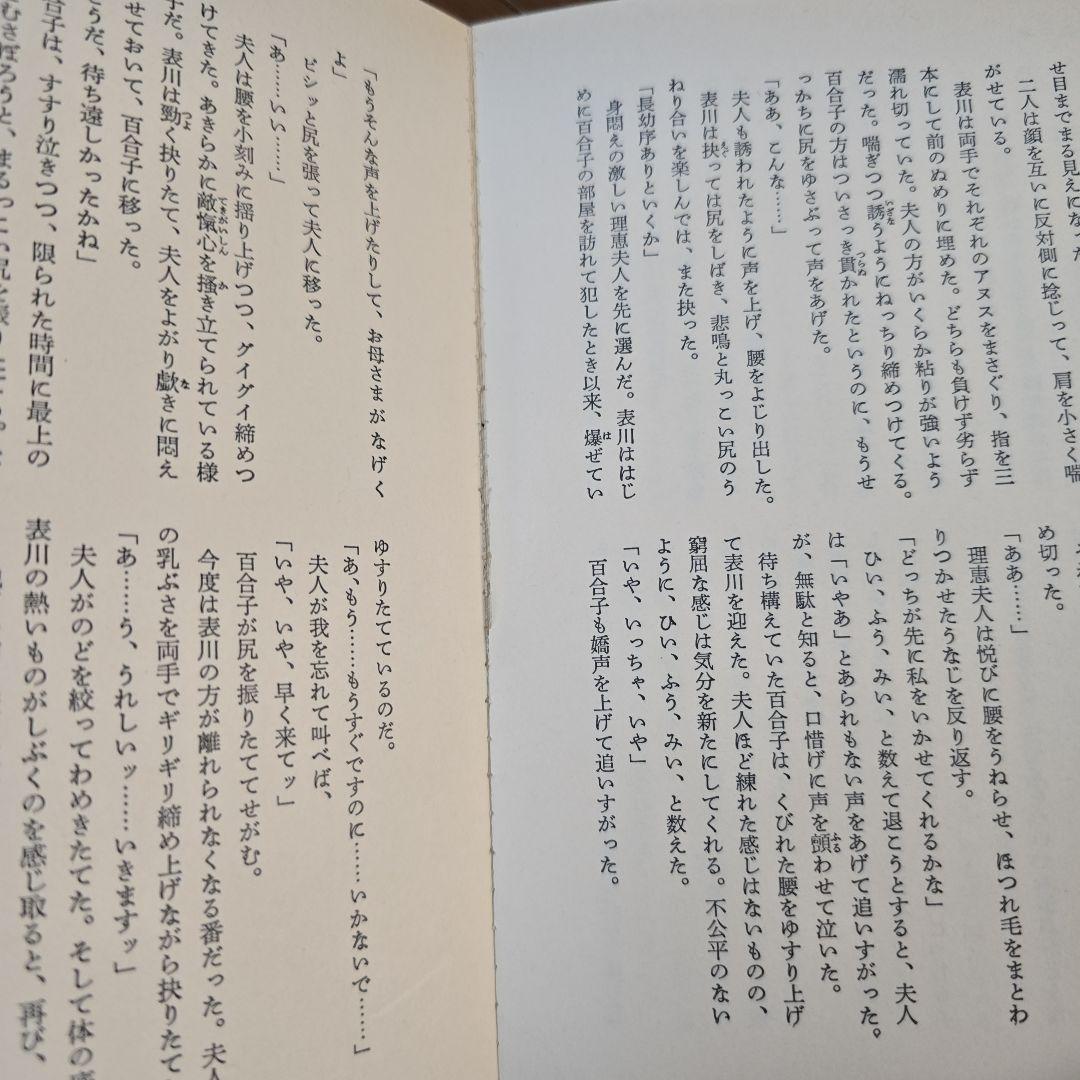 せ目までまる見えになった
二人は顔を互いに反対側に捻じって、肩を小さく喘
がせている。
表川は両手でそれぞれのアヌスをまさぐり、指を三
本にして前のぬめりに埋めた。どちらも負けず劣らず
濡れ切っていた。夫人の方がいくらか粘りが強いよう
だった。喘ぎつつ誘うようにねっちり締めつけてくる。
百合子の方はついさっき貫かれたというのに、もうせ
っかちに尻をゆさぶって声をあげた。
「ああ、こんな……」
夫人も誘われたように声を上げ、腰をよじり出した。
表川は抉っては尻をしばき、悲鳴と丸っこい尻のう
ねり合いを楽しんでは、また抉った。
「長幼序ありといくか」
身悶えの激しい理恵夫人を先に選んだ。表川ははじ
めに百合子の部屋を訪れて犯したとき以来、爆ぜてい
め切った。
「ああ……」
理恵夫人は悦びに腰をうねらせ、ほつれ毛をまとわ
りつかせたうなじを反り返す。
「どっちが先に私をいかせてくれるかな」
ひい、ふう、みい、と数えて退こうとすると、夫人
は「いやあ」とあられもない声をあげて追いすがった。
が、無駄と知ると、口惜げに声を顫わせて泣いた。
待ち構えていた百合子は、くびれた腰をゆすり上げ
て表川を迎えた。夫人ほど練れた感じはないものの、
窮屈な感じは気分を新たにしてくれる。不公平のない
ように、ひい、ふう、みい、と数えた。
「いや、いっちゃ、いや」
百合子も嬌声を上げて追いすがった。
「もうそんな声を上げたりして、お母さまがなげく
よ」
ピシッと尻を張って夫人に移った。
「あ……いい……」
夫人は腰を小刻みに揺り上げつつ、グイグイ締めつ
けてきた。あきらかに敵愾心を掻き立てられている様
子だ。表川は勁く抉りたて、夫人をよがり歔きに悶え
せておいて、百合子に移った。
うだ、待ち遠しかったかね」
合子は、すすり泣きつつ、限られた時間に最上の
むさぼろうと、まるっこい尻を
ゆすりたてているのだ。
「あ、もう……もうすぐですのに……いかないで……」
夫人が我を忘れて叫べば、
「いや、いや、早く来てッ」
百合子が尻を振りたててせがむ。
今度は表川の方が離れられなくなる番だった。夫人
の乳ぶさを両手でギリギリ締め上げながら抉りたて
「あ……う、うれしいッ……いきますッ」
夫人がのどを絞ってわめきたてた。そして体の
表川の熱いものがしぶくのを感じ取ると、再び、